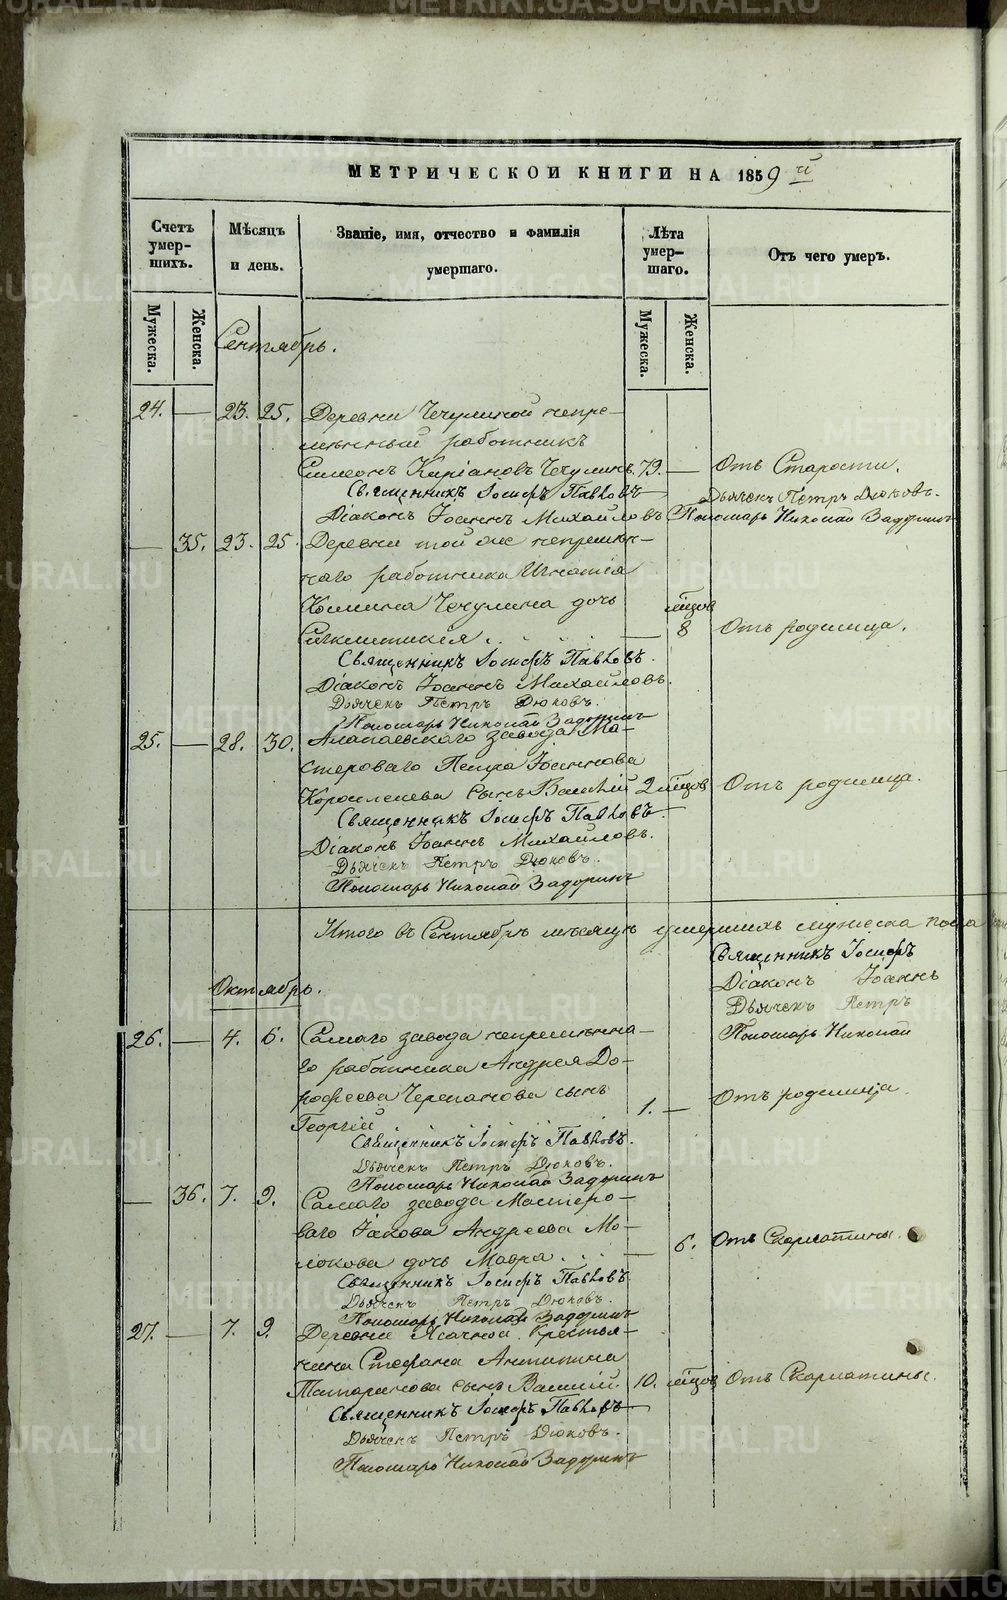 МЕТРИЧЕСКОЙ КНИГИ НА 1859й
Счетъ умер-шихъ.
Мѣсяцъ и день.
Званіе, имя, отчество и фамилія умершаго.
Лѣта умер-шаго.
Отъ чего умеръ.
Мужеска.
Женска.
Мужеска.
Женска.
Сентябрь.
24. — 23. 25. Деревни Чечулиной непре-
мѣнный работникъ
Симеонъ Чечулинъ 79. — Отъ Старости.
Священникъ Іосифъ Павловъ Дьячекъ Петръ Дюковъ.
Діаконъ Іоаннъ Михайловъ Пономарь Николай Задоринъ
— 35. 23. 25. Деревни той же непремѣн-
наго работника Игнатія
Козмина Чечулина дочь мѣсцов
Сигклитикія — 8 Отъ родимца.
Священникъ Іосифъ Павловъ.
Діаконъ Іоаннъ Михайловъ.
Дьячекъ Петръ Дюковъ.
Пономарь Николай Задоринъ
25. — 28. 30. Алапаевскаго завода Ма-
стероваго Петра Іоаннова
сынъ 2 мѣсцов Отъ родимца.
Священникъ Іосифъ Павловъ.
Діаконъ Іоаннъ Михайловъ.
Дьячекъ Петръ Дюковъ.
Пономарь Николай Задоринъ
Итого въ Сентябрѣ мѣсяцѣ умершихъ мужеска пола
Священникъ Іосифъ
Діаконъ Іоаннъ
Дьячекъ Петръ
Пономарь Николай
Октябрь.
26. — 4. 6. Самаго завода непремѣнна-
го работника Андрея До-
рофеева Черепанова сынъ
Георгій 1. — Отъ родимца.
Священникъ Іосифъ Павловъ.
Дьячекъ Петръ Дюковъ.
Пономарь Николай Задоринъ
— 36. 7. 9. Самаго завода Мастеро-
ваго Іакова Андреева Мо-
локова дочь Мавра — 6. Отъ Скарлатины.
Священникъ Іосифъ Павловъ.
Дьячекъ Петръ Дюковъ.
Пономарь Николай Задоринъ
27. — 7. 9. Деревни Ясачной Крестья-
нина Стефана Антипина
Татаринова сынъ 10. мѣсцов Отъ Скарлатины.
Священникъ Іосифъ Павловъ
Дьячекъ Петръ Дюковъ.
Пономарь Николай Задоринъ
METRIKI.GASO-URAL.RU